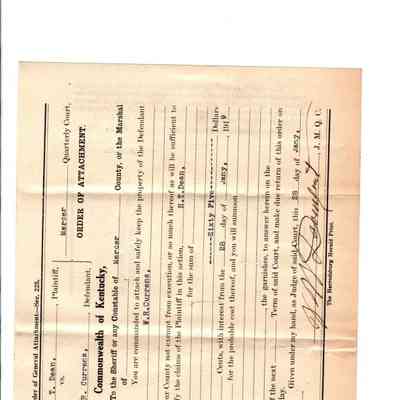 der of General Attachment—Sec. 225.
T. Dean, Plaintiff,
vs.
R. Currens, Defendant,
Mercer Quarterly Court,
ORDER OF ATTACHMENT.
Commonwealth of Kentucky,
To the Sheriff or any Constable of Mercer County, or the Marshal
of
You are commanded to attach and safely keep the property of the Defendant
W.R.Currens,
or County not exempt from execution, or so much thereof as will be sufficient to
fy the claims of the Plaintiff in this action, H.T.Dean,
for the sum of
------Sixty Five------------ Dollars
Cents, with interest from the 28 day of Jany, 191
for the probable cost thereof, and you will summon
the garnishee, to answer herein on the
of the next Term of said Court, and make due return of this order on
day.
Given under my hand, as Judge of said Court, this 28 day of Jany,
J. M. Q. C.
The Harrodsburg Herald Print.